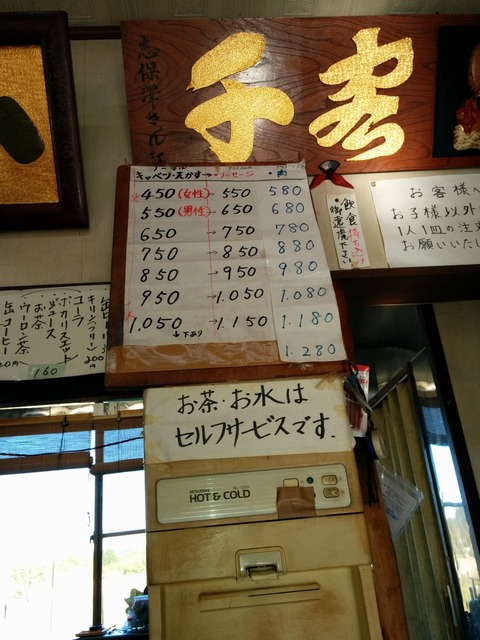 志保澤さん江
千寿
キャベツ・天かす→ソーセージ・肉
450(女性)→550 580
550(男性)→650 680
650→750 780
750→850 880
850→950 980
950→1.050 1.080
1,050→1.150 1.180
↓下あり
1.280
飲食持ち込み
御遠慮下さい
お客様へ
お子様以外
1人1皿の注文
お願いいたし
キリン(フリー)
300円
コーラ
ポカリスエット
ジュース
お茶
ウーロン茶
缶コーヒー
160
お茶・お水は
セルフサービスです.
MITSUBISHI
HOT & COLD